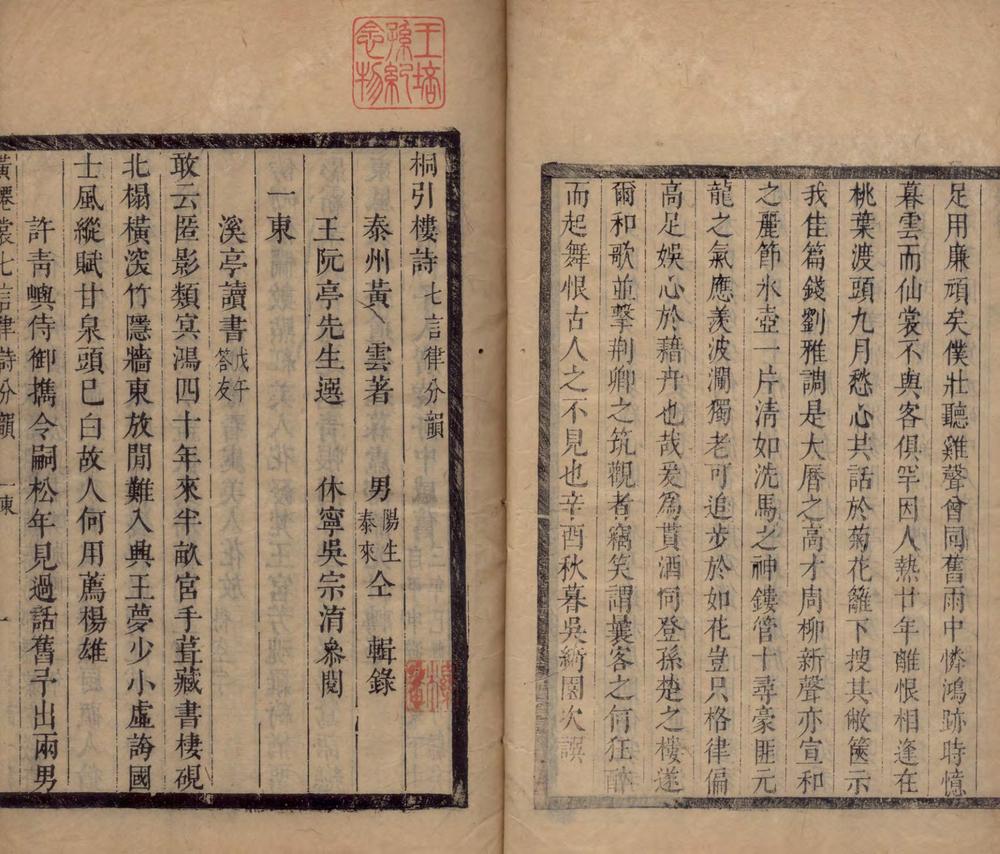 足用廉頑矣僕壯聽雞聲曾同舊雨中憐鴻跡時憶
暮雲而仙裳不與客俱罕因人熱廿年離恨相逢在
桃葉渡頭九月愁心共話於菊花籬下搜其敝篋示
我佳篇錢劉雅調是大曆之高才周柳新聲亦宣和
之麗節水壺一片清如洗馬之神鏤管十尋豪匪元
龍之氣應羨波瀾獨老可追步於如花豈只格律偏
高足娛心於藉卉也哉爰為貰酒同登孫楚之樓遂
爾和歌並擊荆卿之筑觀者竊笑謂曩客之何狂醉
而起舞恨古人之不見也辛酉秋暮吳綺園次譔
王培孫紀念物
桐引樓詩 七言律分韻
泰州黃 雲著 男 陽生 泰來 仝 輯錄
王阮亭先生選 休寧吳宗消叅閱
一東
溪亭讀書 戊午 答友
敢云匿影類冥鴻四十年來半畝宮手葺藏書棲硯
北榻橫深竹隱牆東放閒難入興王夢少小虛誇國
士風縱賦甘泉頭已白故人何用薦楊雄
許青嶼侍御攜令嗣松年見過話舊予出兩男
黃僊裳七言律詩分韻 一東 一